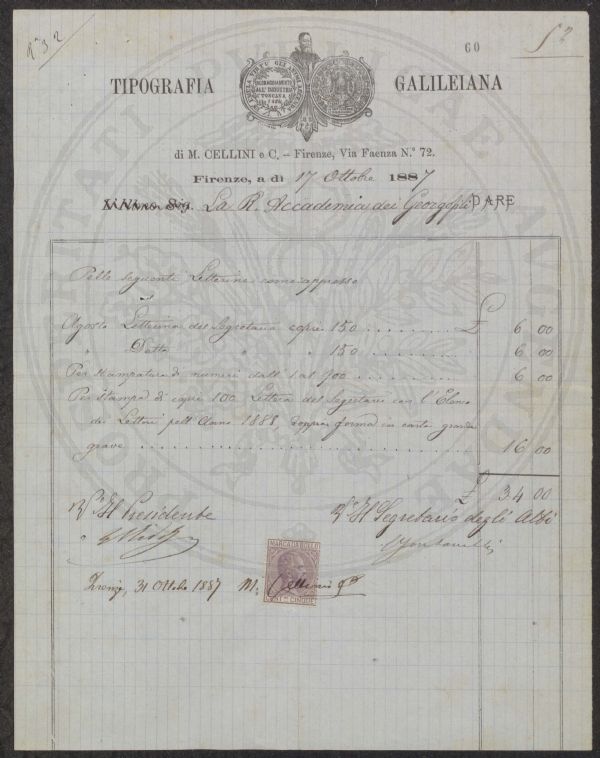 60
52
TIPOGRAFIA GALILEIANA
INCORAGGIAMENTO
ALL'INDUSTRIA
TOSCANA
di M. CELLINI e C. – Firenze, Via Faenza N.° 72.
Firenze, a dì 17 Ottobre 1887
Sig. La R. Accademia dei Georgofili DARE
Pelle seguenti Letterine come appresso
Agosto Letterina del Segretario copie 150 £ 6 00
" Detta " 150 6 00
Per stampatura di numeri dall' 1 al 900 6 00
Per stampa di copie 100 Lettera del Segretario con l'Elenco
dei Lettori pell'Anno 1888 doppia forma in carta grande
grave 16 00
£ 34 00
V° Il Presidente
V° Il Segretario degli Atti
Firenze, 31 Ottobre 1887 M. Cellini
MARCA DA BOLLO
CENT. CINQUE